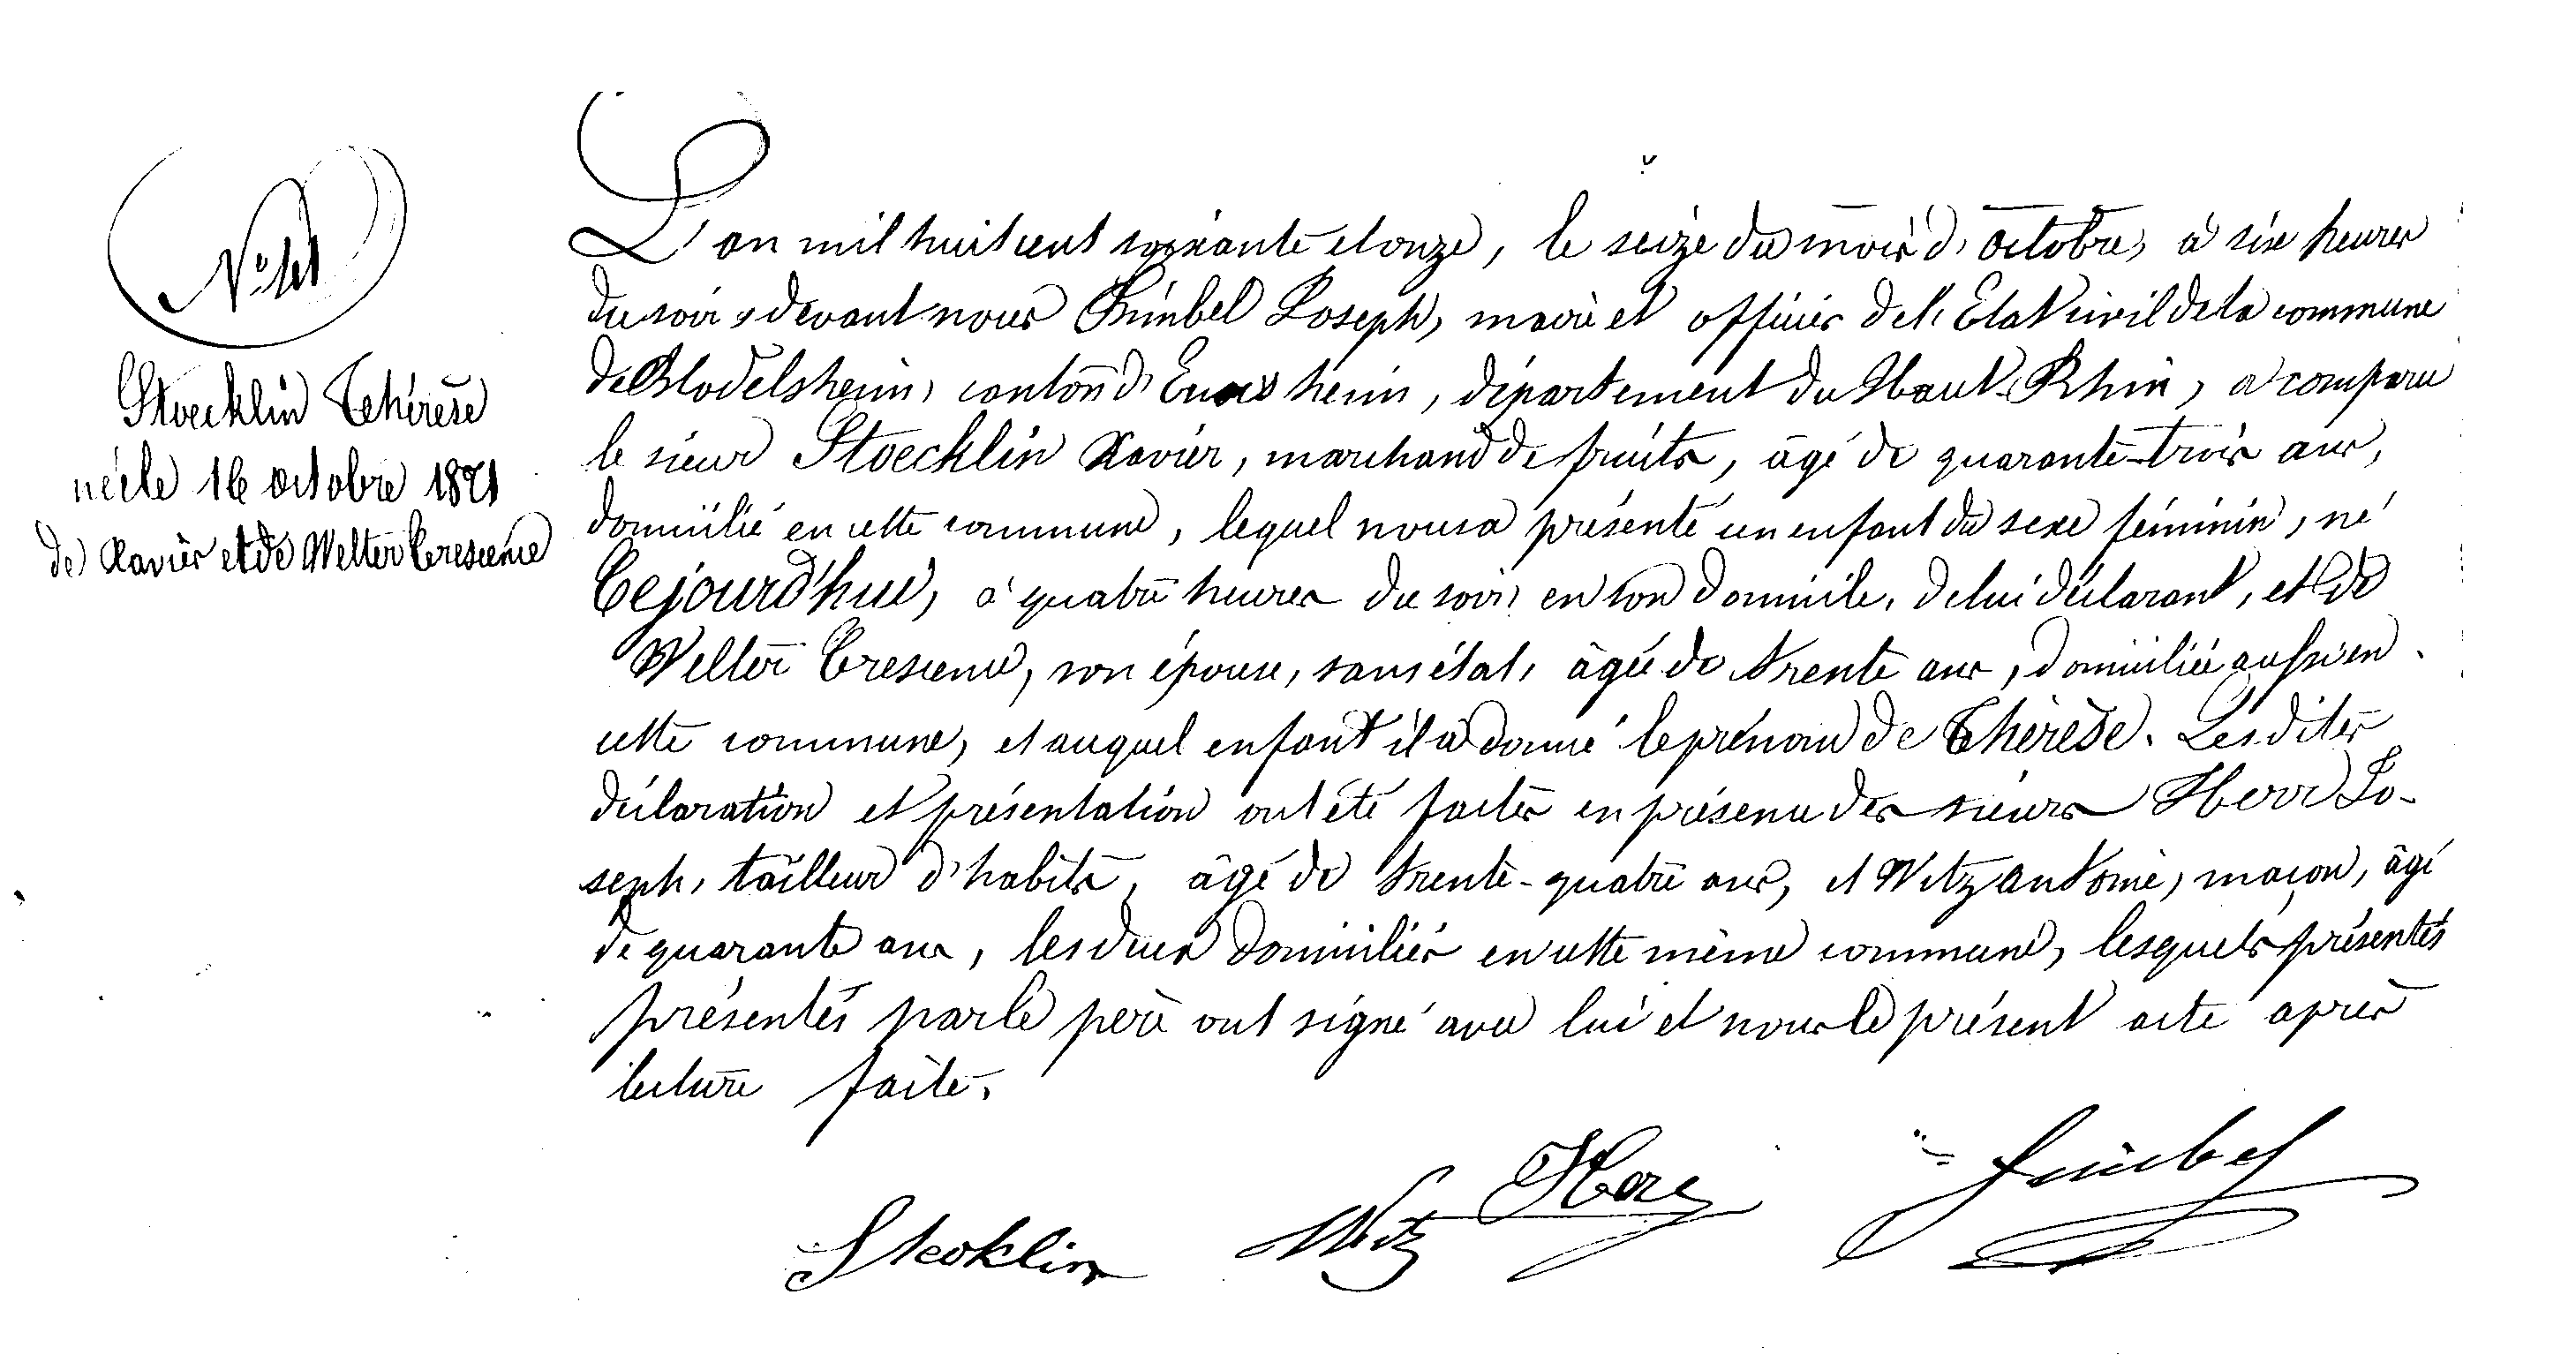 Stoecklin Thérèse
née le 16 octobre 1871
de Xavier et de Welter Crescence
L'an mil huit cent soixante et onze, le seize du mois d'octobre, à six heures
du soir, devant nous Fimbel Joseph, maire et officier de l'Etat civil de la commune
de Blodelsheim, canton d'Ensisheim, département du Haut-Rhin, a comparu
le sieur Stoecklin Xavier, marchand de fruits, âgé de quarante-trois ans,
domicilié en cette commune, lequel nous a présenté un enfant du sexe féminin, né
Cejourd'hui, à quatre heures du soir, en son domicile, de lui déclarant, et de
Welter Crescence, son épouse, sans état, âgée de trente ans, domiciliée aussi en
cette commune, et auquel enfant il a donné le prénom de Thérèse. Lesdites
déclaration et présentation ont été faites en présence des sieurs Herr Jo-
seph, tailleur d'habits, âgé de trente-quatre ans, et Witz Antoine, maçon, âgé
de quarante ans, les deux domiciliés en cette même commune, lesquels présentés
présentés par le père ont signé avec lui et nous le présent acte après
lecture faite.
Steoklin Witz Herr Fimbel